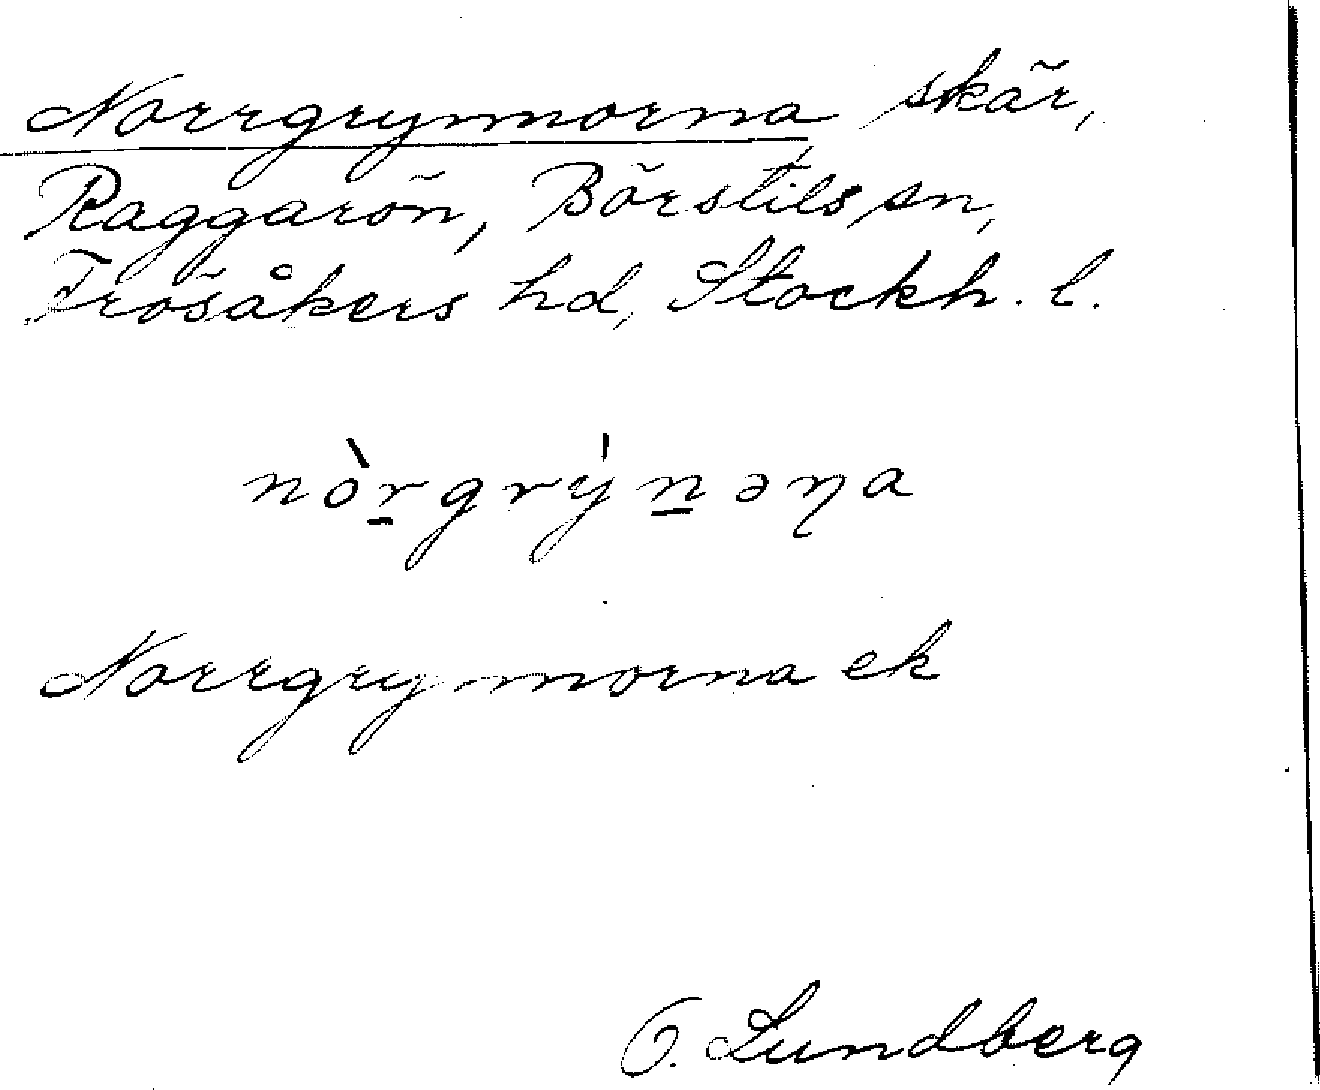 Norrgrynnorna skär,
Raggarön, Börstils sn,
Frösåkers hd, Stockh. l.
nòṟgrýṉəɳa
Norrgrynnorna ek
O. Lundberg